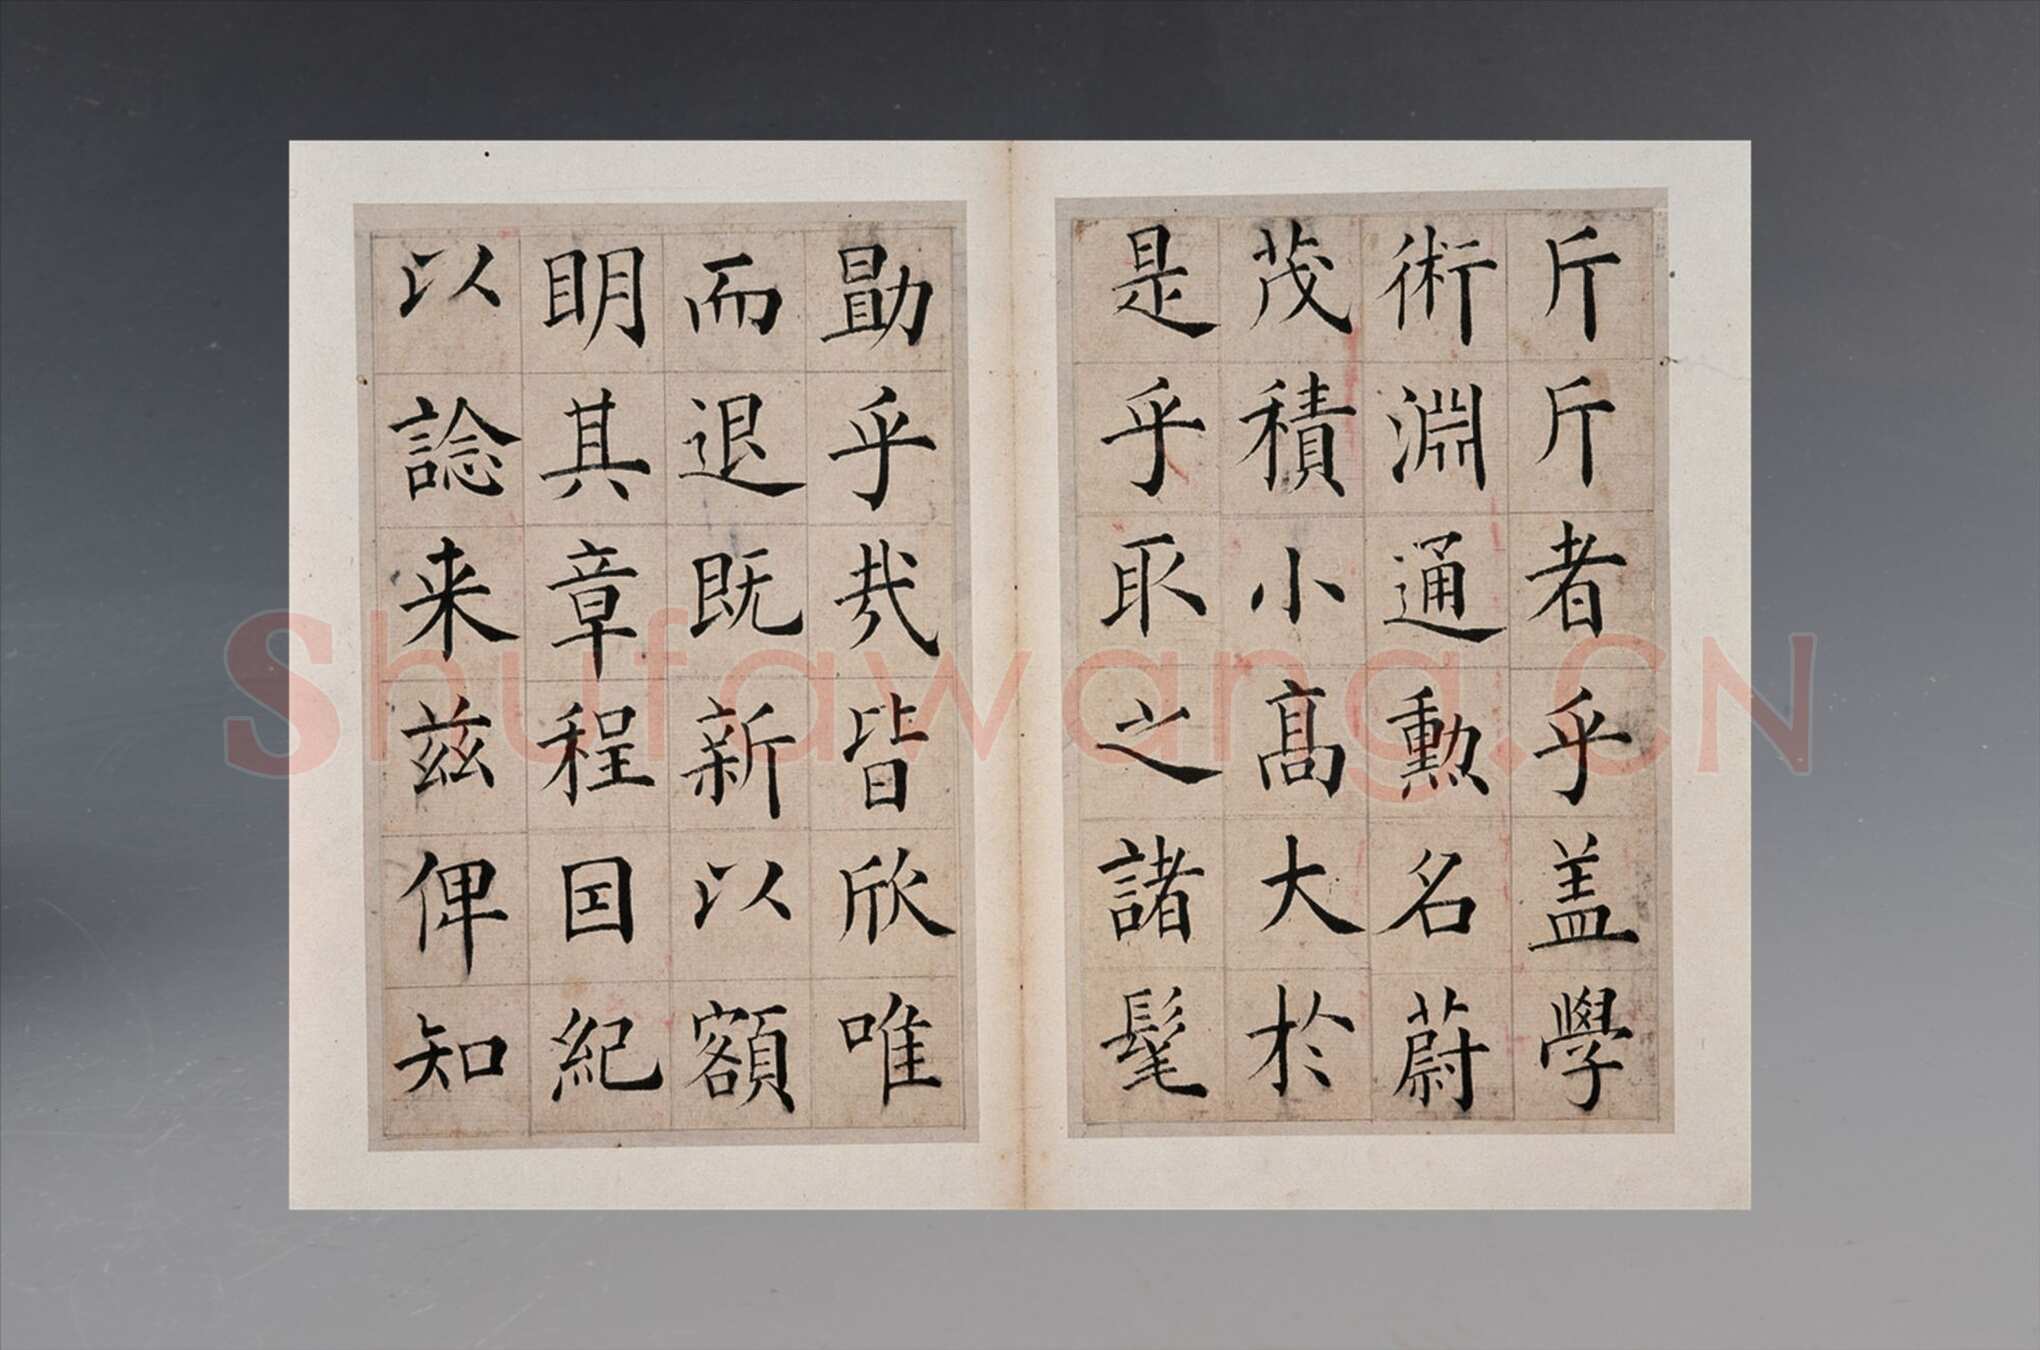 斤斤者乎盖學
術淵通勲名蔚
茂積小高大於
是乎取之諸髦
勖乎哉皆欣唯
而退既新以額
明其章程因紀
以諗来茲俾知
Shufawang.CN